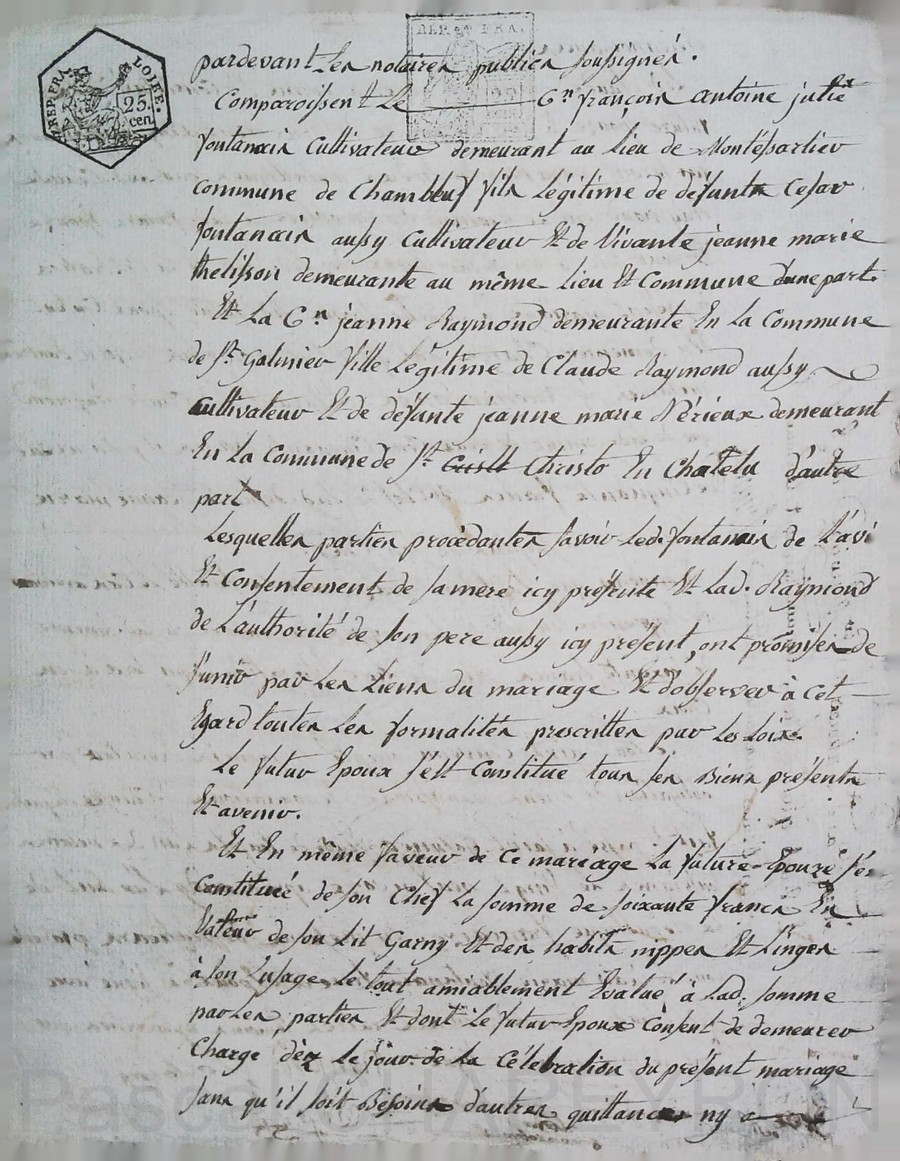 REP. FRA. LOIRE.
25.
cen.
REP. FRA.
pardevant Les notaires publics soussignés.
Comparoissent Le C.en françois antoine julie
fontanais Cultivateur demeurant au lieu de Montéssartier
Commune de Chambeuf fils Légitime de défunts Cesar
fontanais aussy Cultivateur Et de Vivante jeanne marie
thelisson demeurante au même Lieu Et Commune d'une part.
Et La C.en jeanne Raymond demeurante En La Commune
de St. Galmier fille Légitime de Claude Raymond aussy
Cultivateur Et de défunte jeanne marie Nérieux demeurant
En La Commune de St. Christo En Chatelu d'autre
part
Lesquelles parties procédantes savoir Led. fontanais de L'avi
Et Consentement de sa mere icy présente Et Lad. Raymond
de L'authorité de son pere aussy icy présent, ont promises de
s'unir par Les Liens du mariage Et d'observer à Cet
Egard toutes Les formalités prescrittes par Les Loix.
Le futur Epoux s'est Constitué tous ses Biens présents
Et avenir.
Et En même faveur de Ce mariage La future Epouze s'es
Constituée de son Chef La somme de soixante francs En
Valeur de son Lit Garny Et des habits nippes Et Linges
à son L'usage Le tout amiablement Evalué à Lad. somme
par Les parties Et dont Le futur Epoux Consent de demeurer
Chargé dèz Le jour de La Célébration du présent mariage
sans qu'il soit Besoins d'autres quittances ny a